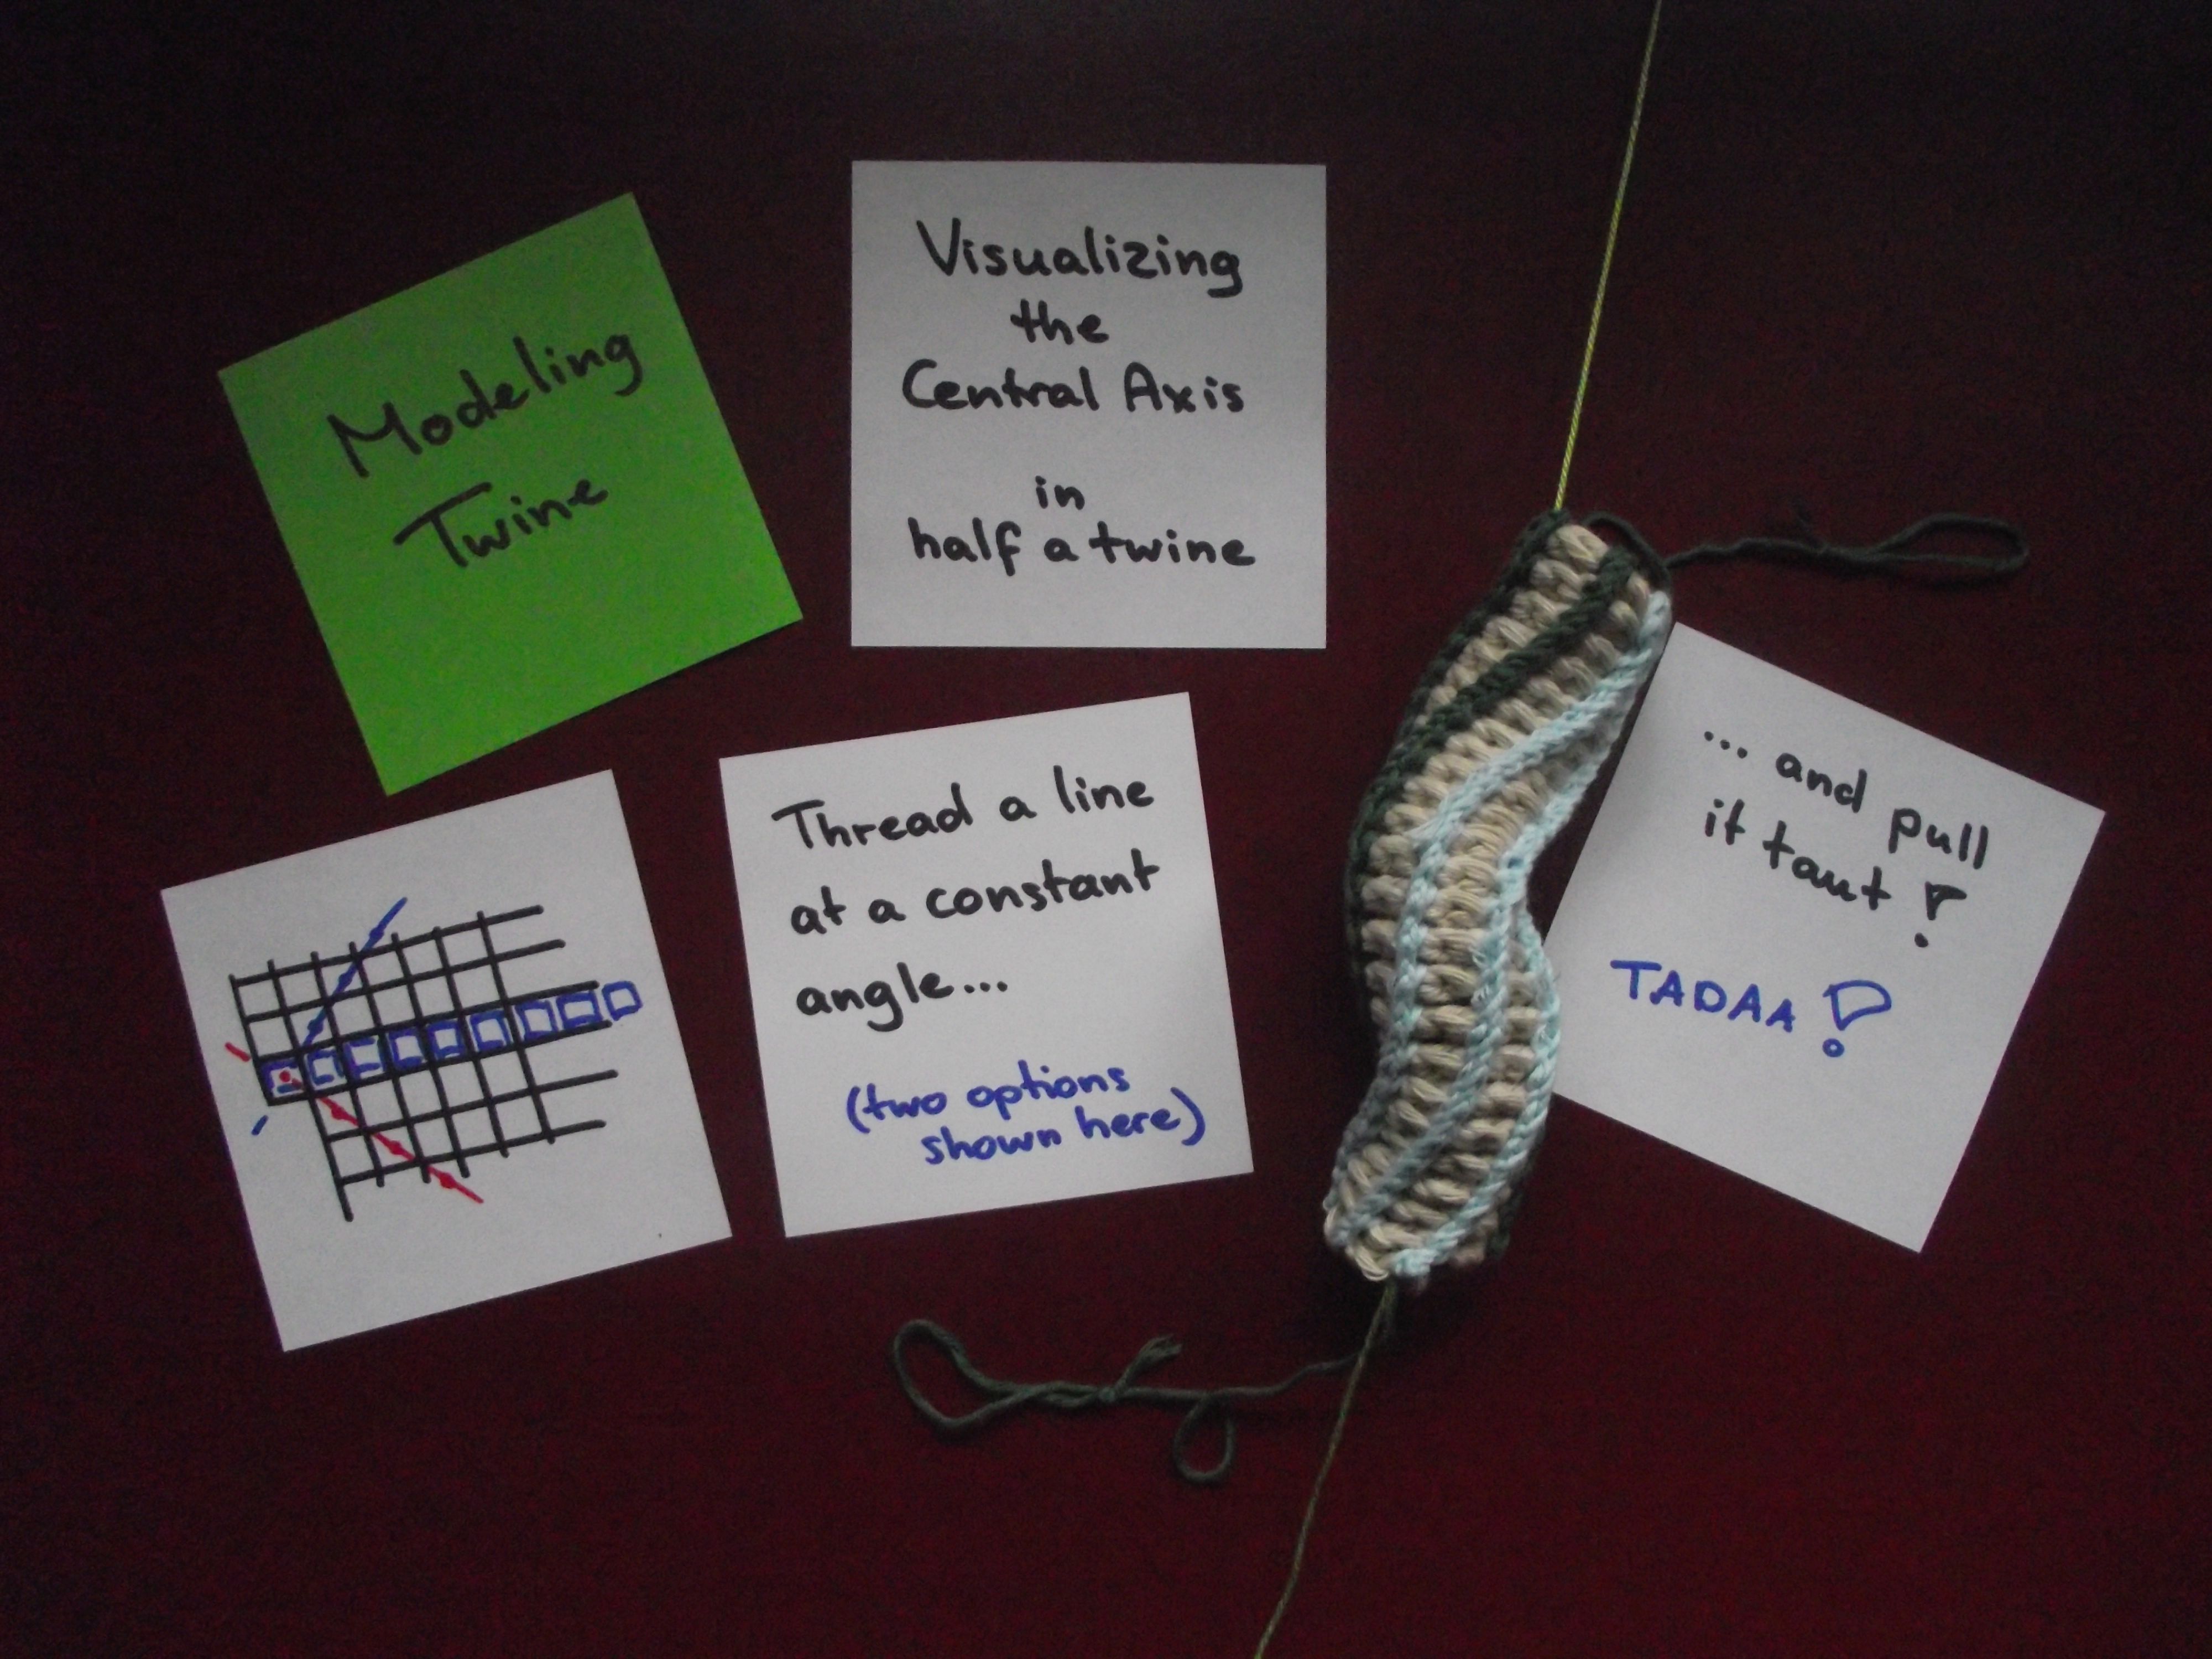 Modeling
Twine
Visualizing
the
Central Axis
in
half a twine
Thread a line
at a constant
angle...
(two options
shown here)
... and pull
it taut!
TADAA!